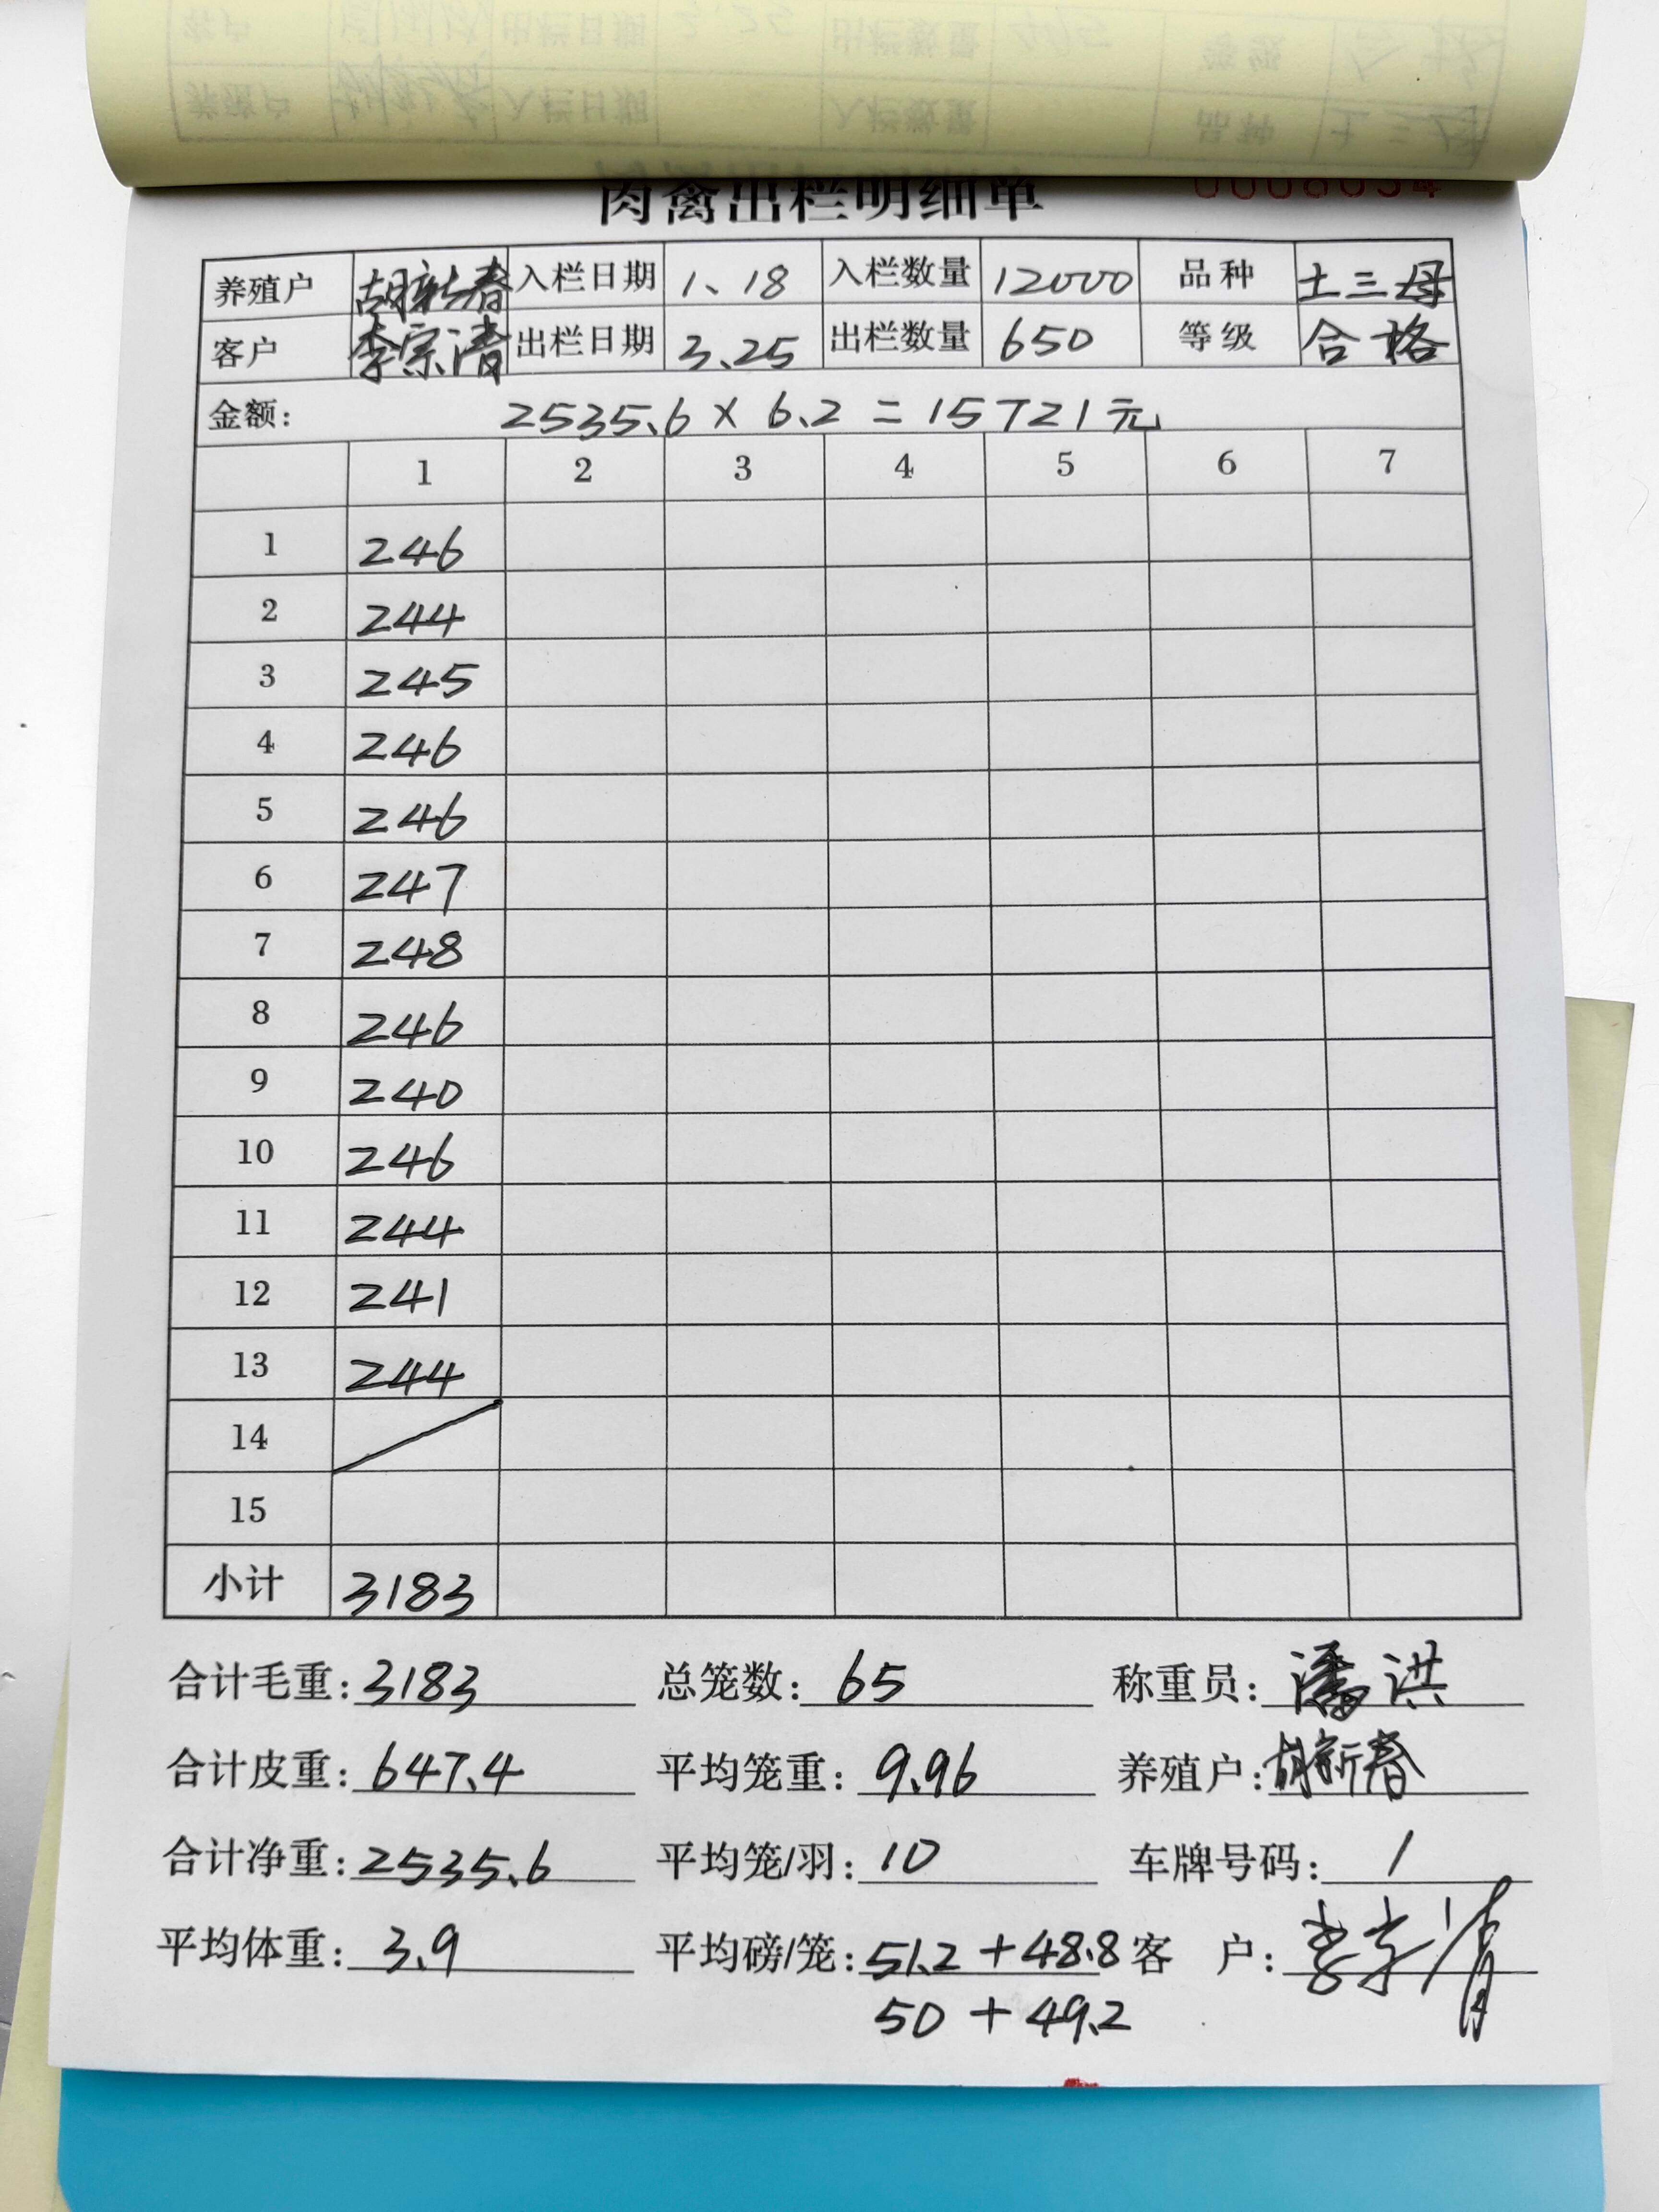 肉禽出栏明细单
养殖户 胡新春 入栏日期 1、18 入栏数量 12000 品种 土三母
客户 李宗清 出栏日期 3、25 出栏数量 650 等级 合格
金额: 2535.6 × 6.2 = 15721元
1 2 3 4 5 6 7
1 246
2 244
3 245
4 246
5 246
6 247
7 248
8 246
9 240
10 246
11 244
12 241
13 244
14
15
小计 3183
合计毛重: 3183 总笼数: 65 称重员: 潘洪
合计皮重: 647.4 平均笼重: 9.96 养殖户: 胡新春
合计净重: 2535.6 平均笼/羽: 10 车牌号码: 1
平均体重: 3.9 平均磅/笼: 51.2 + 48.8 客 户: 李宗清
50 + 49.2